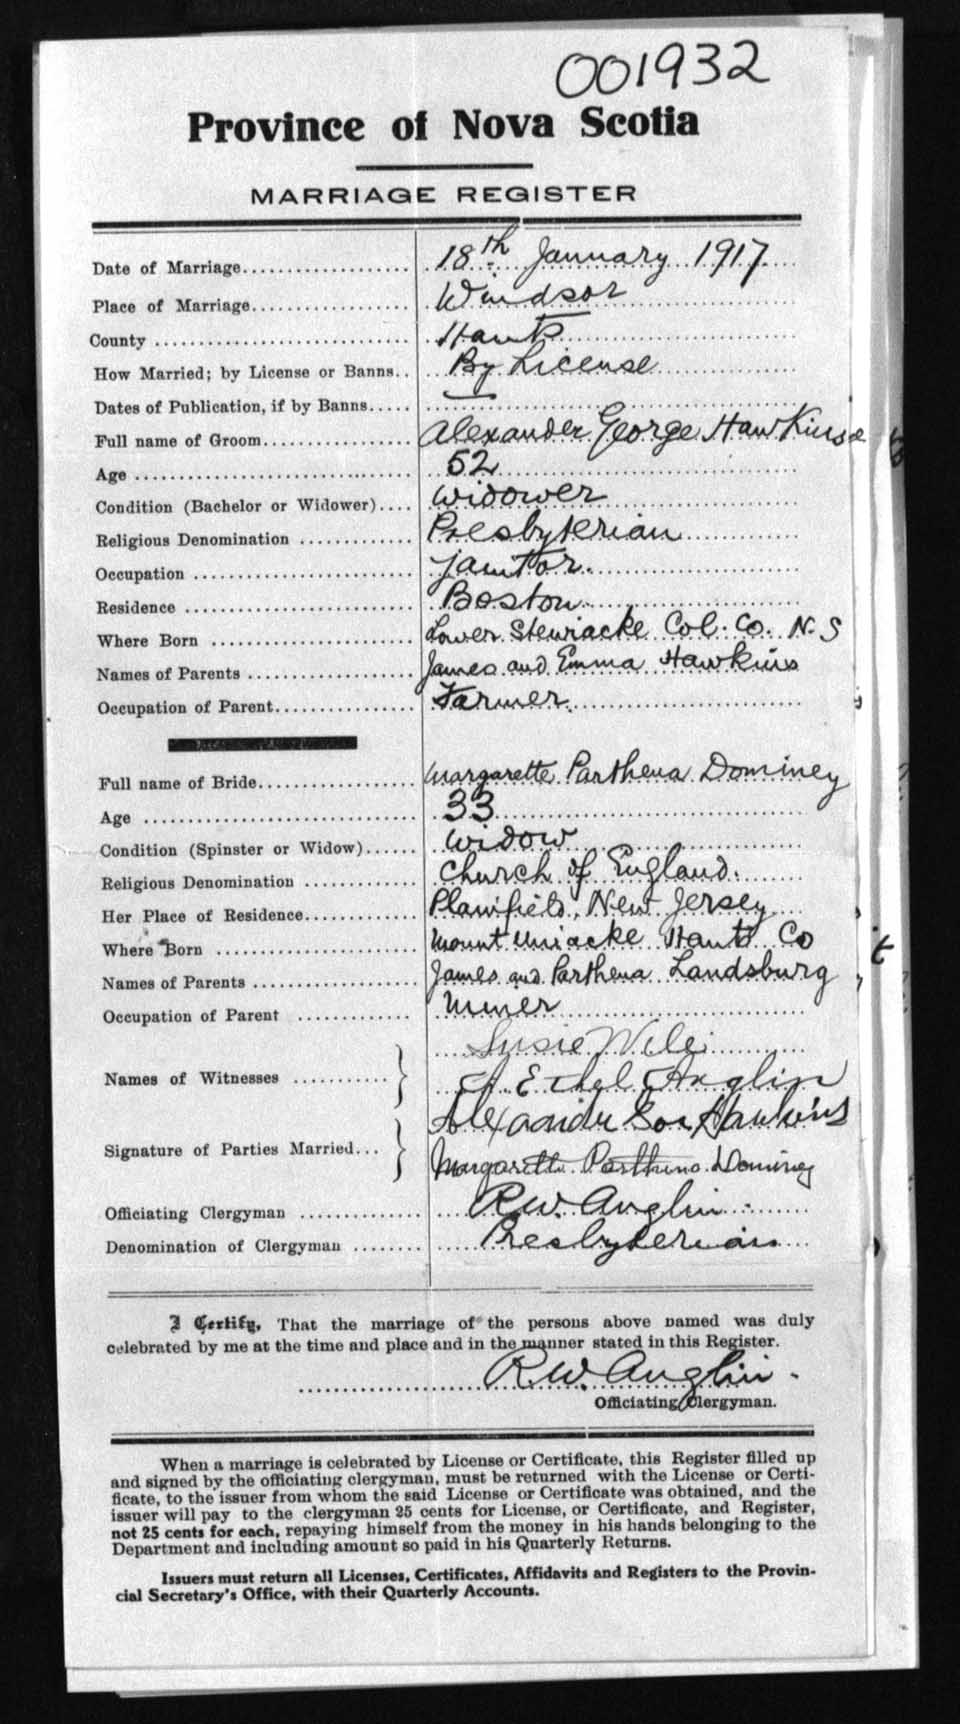 001932
Province of Nova Scotia
MARRIAGE REGISTER
Date of Marriage................... 18th January 1917
Place of Marriage.................. Windsor
County ............................. Hants
How Married; by License or Banns.. By License
Dates of Publication, if by Banns.....
Full name of Groom................. Alexander George Hawkins
Age ................................ 52
Condition (Bachelor or Widower).... Widower
Religious Denomination ............. Presbyterian
Occupation ......................... Janitor.
Residence .......................... Boston
Where Born ........................ Lower Stewiacke Col. Co. N.S
Names of Parents ................... James and Emma Hawkins
Occupation of Parent................ Farmer
Full name of Bride.................. Margarette Parthena Dominey
Age ................................ 33
Condition (Spinster or Widow)...... Widow
Religious Denomination ............. Church of England.
Her Place of Residence............. Plainfield, New Jersey
Where Born ........................ Mount Uniacke Hants Co
Names of Parents ................... James and Parthena Landsburg
Occupation of Parent ............. Miner
Susie Wile
Names of Witnesses ........... A. Ethel Anglin
Alexander Geo Hawkins
Signature of Parties Married... Margarette Parthena Dominey
Officiating Clergyman .............. R.W. Anglin
Denomination of Clergyman ........ Presbyterian
I Certify, That the marriage of the persons above named was duly
celebrated by me at the time and place and in the manner stated in this Register.
R.W. Anglin.
Officiating Clergyman.
When a marriage is celebrated by License or Certificate, this Register filled up
and signed by the officiating clergyman, must be returned with the License or Certi-
ficate, to the issuer from whom the said License or Certificate was obtained, and the
issuer will pay to the clergyman 25 cents for License, or Certificate, and Register,
not 25 cents for each, repaying himself from the money in his hands belonging to the
Department and including amount so paid in his Quarterly Returns.
Issuers must return all Licenses, Certificates, Affidavits and Registers to the Provin-
cial Secretary's Office, with their Quarterly Accounts.